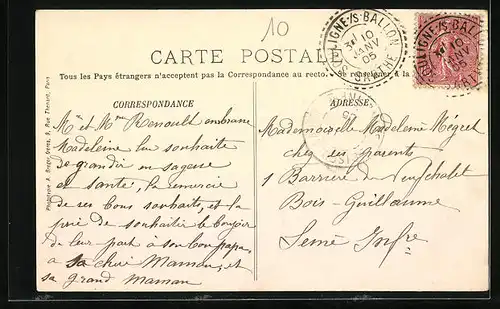 10
CARTE POSTALE
Tous les Pays étrangers n'acceptent pas la Correspondance au recto. Se renseigner à la
CORRESPONDANCE
Mr et Mme Renoult embrasse
Madeleine lui souhaite
de grandir en sagesse
et santé, la remercie
de ses bons souhaits, et la
prie de souhaiter le bonjour
de leur part à son bon papa
à sa chère Maman, et
sa grand maman
ADRESSE
Mademoiselle Madeleine Mégret
chez ses parents
1 Barrière de Neufchatel
Bois-Guillaume
Seine Infre
SOULIGNÉ-S-BALLON
10
JANV
05
SARTHE
SOULIGNÉ-S-BALLON
10
JANV
05